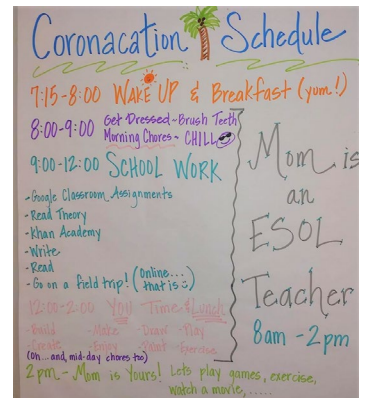 Coronacation Schedule
7:15-8:00 WAKE UP & Breakfast (yum!)
8:00-9:00 Get Dressed~Brush Teeth
Morning Chores~ CHILL
9:00-12:00 SCHOOL WORK
-Google Classroom Assignments
-Read Theory
-Khan Academy
-Write
-Read
-Go on a field trip! (Online...
that is :)
12:00-2:00 YOU -Time & Lunch
-Build -Make -Draw -Play
-Create -Enjoy -Paint -Exercise
(oh...and, mid-day chores too)
2pm - Mom is Yours! Lets play games, exercise,
watch a movie, .....
Mom is
an
ESOL
Teacher
8am -2pm